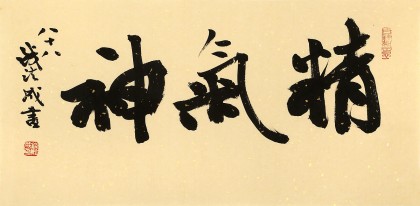 精氣神
八十八
成書